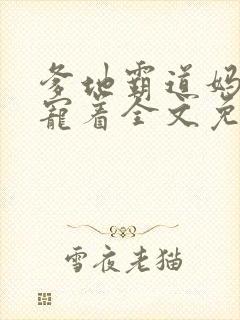 爹地霸道妈
宠着全文免
雪夜老猫